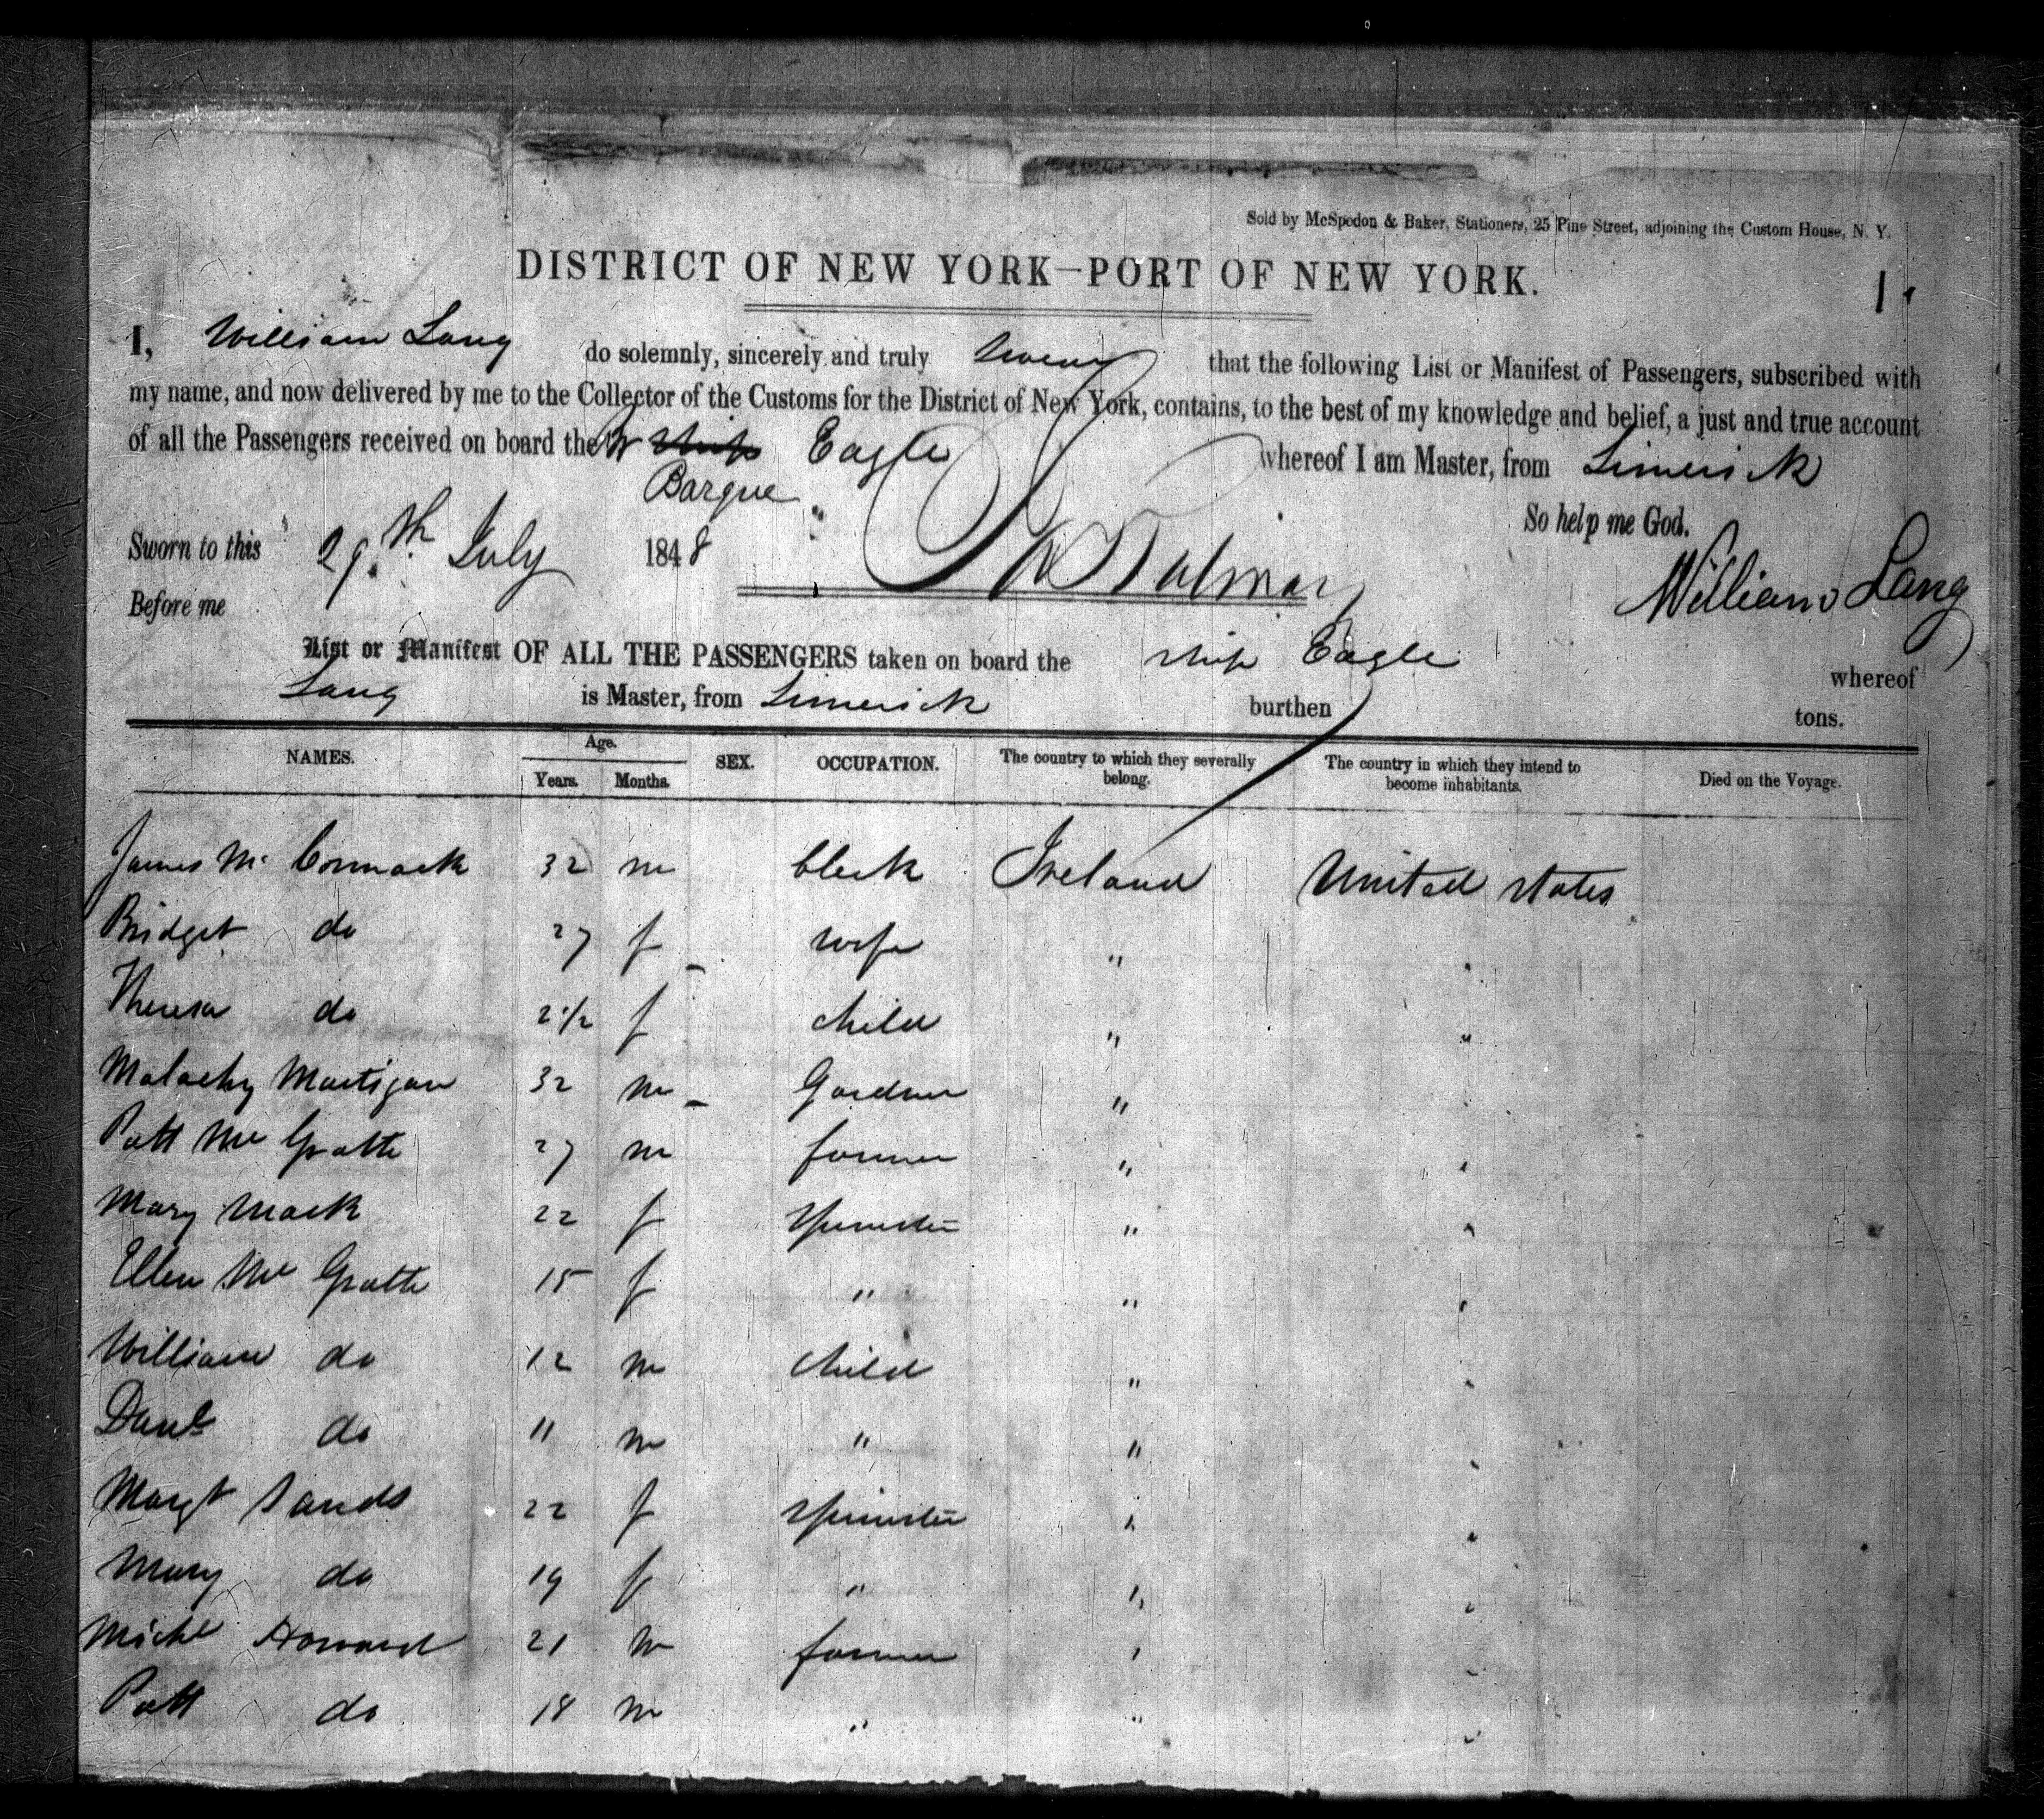 Sold by McSpedon & Baker, Stationers, 25 Pine Street, adjoining the Custom House, N. Y.
DISTRICT OF NEW YORK—PORT OF NEW YORK.
1
I, William Lang do solemnly, sincerely and truly swear that the following List or Manifest of Passengers, subscribed with
my name, and now delivered by me to the Collector of the Customs for the District of New York, contains, to the best of my knowledge and belief, a just and true account
of all the Passengers received on board the Br Ship Eagle whereof I am Master, from Limerick
Barque
So help me God.
Sworn to this 29th July 1848
William Lang
Before me
List or Manifest OF ALL THE PASSENGERS taken on board the ship Eagle whereof
Lang is Master, from Limerick burthen tons.
NAMES. Age. Years. Months. SEX. OCCUPATION. The country to which they severally belong. The country in which they intend to become inhabitants. Died on the Voyage.
James Mc Cormack 32 m clerk Ireland United States
Bridget do 27 f wife "
Theresa do 2 1/2 f child " "
Malachy Martigan 32 m Gardner "
Patt Mc Gratte 27 m farmer " "
Mary Mack 22 f Spinster " "
Ellen Mc Gratte 15 f " " "
William do 12 m child "
Danl do 11 m " "
Margt Sands 22 f Spinster " "
Mary do 19 f " "
Michl Howard 21 m farmer "
Patt do 18 m " "